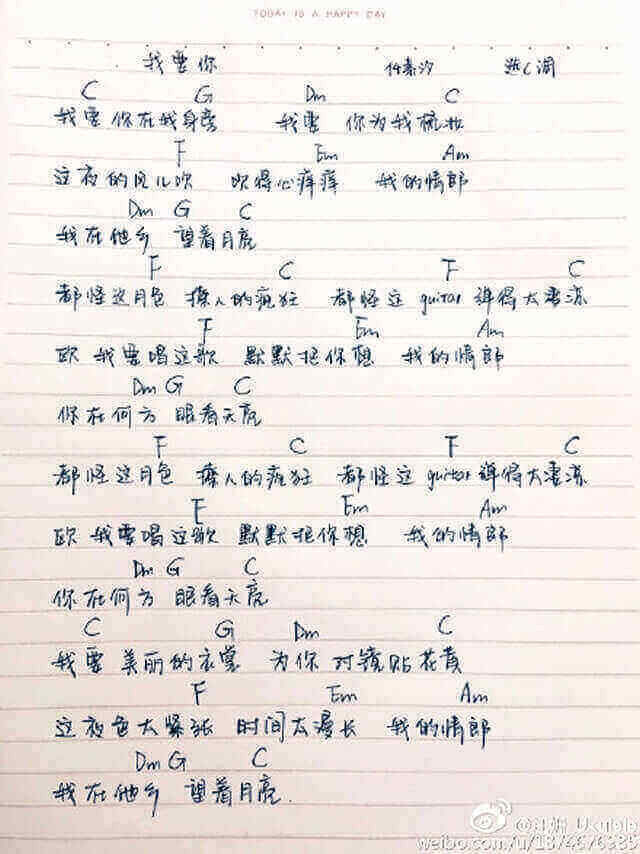 TODAY IS A HAPPY DAY
我要你 任素汐 选C调
C G Dm C
我要 你在我身旁 我要 你为我梳妆
F Em Am
这夜的风儿吹 吹得心痒痒 我的情郎
Dm G C
我在他乡 望着月亮
F C F C
都怪这月色 撩人的疯狂 都怪这 guitar 弹得太凄凉
F Em Am
欧 我要唱这歌 默默把你想 我的情郎
Dm G C
你在何方 眼看天亮
F C F C
都怪这月色 撩人的疯狂 都怪这 guitar 弹得太凄凉
F Em Am
欧 我要唱这歌 默默把你想 我的情郎
Dm G C
你在何方 眼看天亮
C G Dm C
我要 美丽的衣裳 为你 对镜贴花黄
F Em Am
这夜色太紧张 时间太漫长 我的情郎
Dm G C
我在他乡 望着月亮.